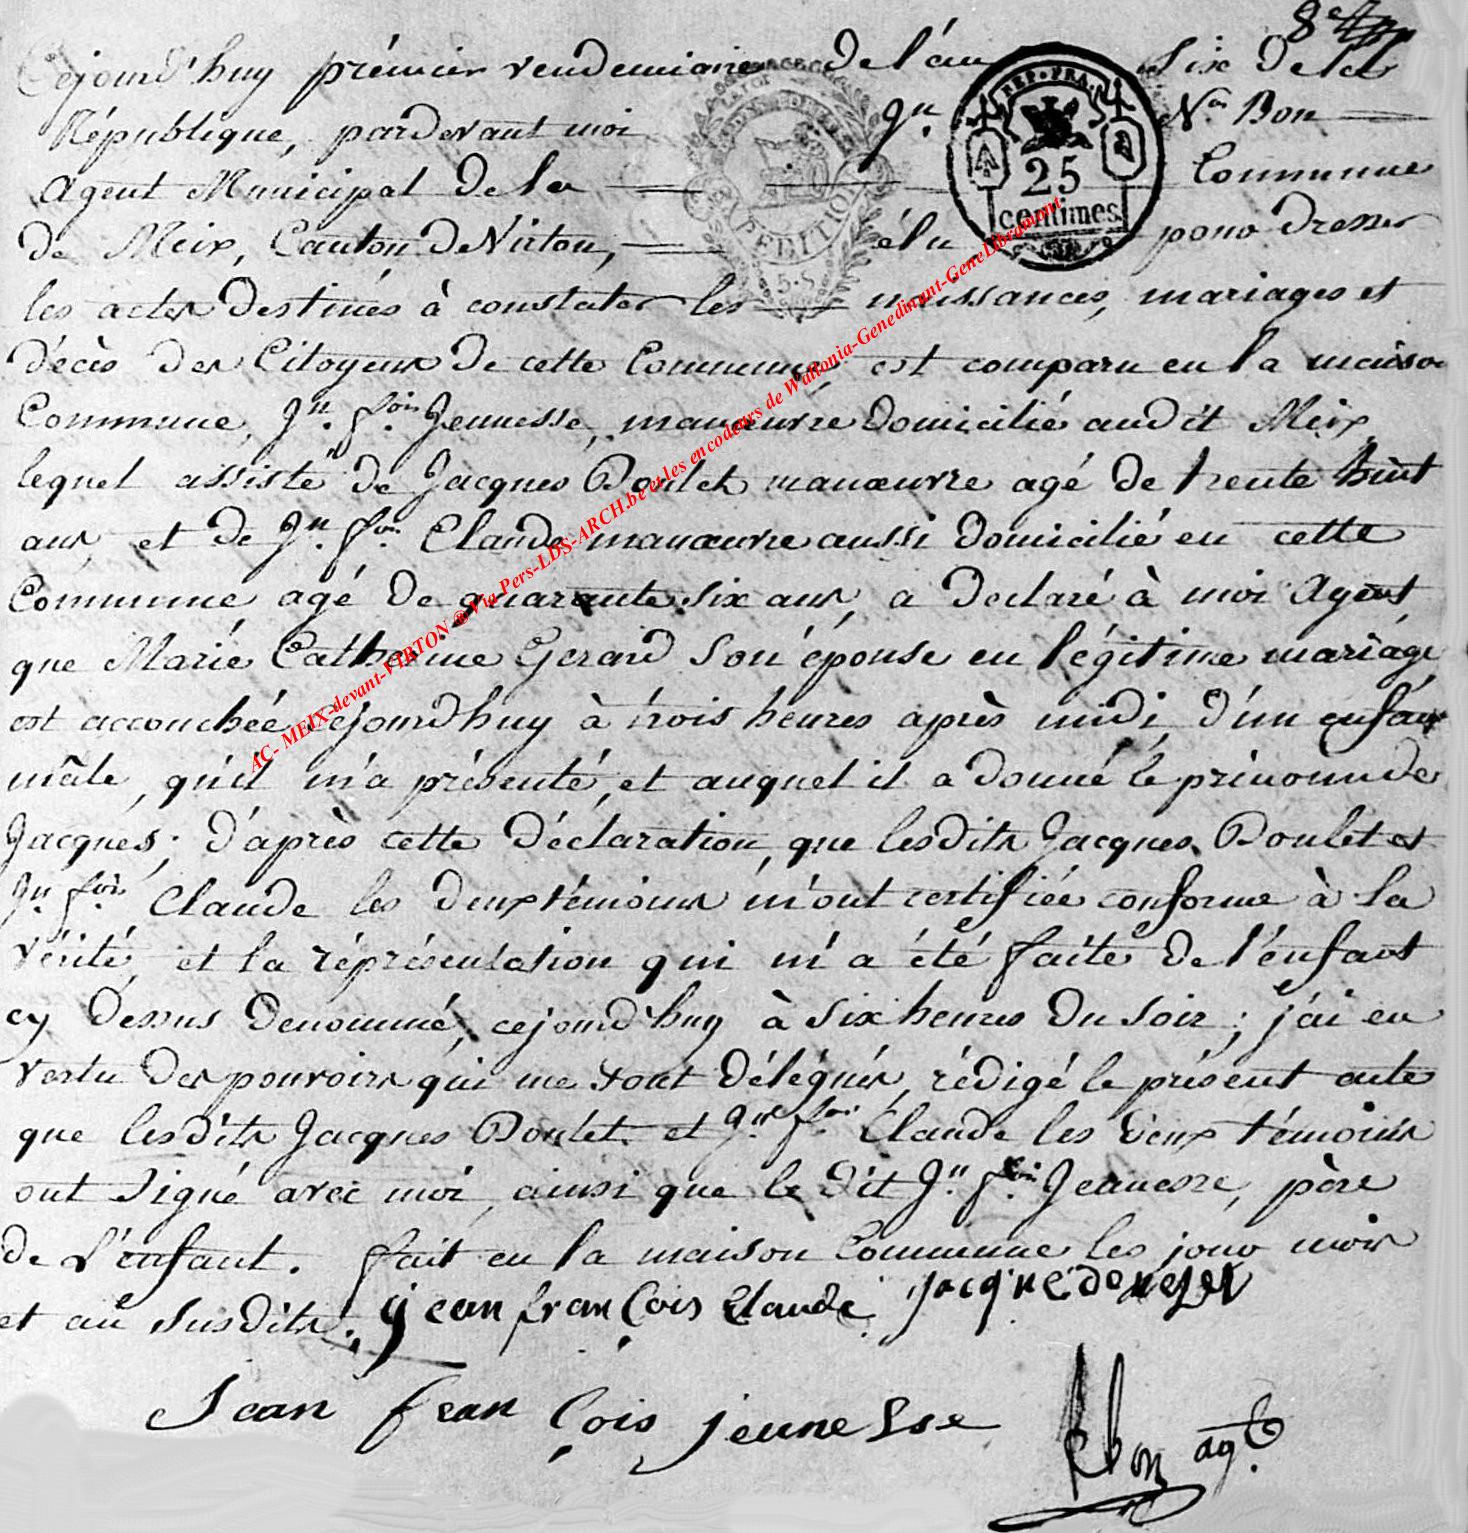 8e
Cejourd'huy prémier vendemiaire de l'an six de la
République, pardevant moi Jn. Ns. Bon
Agent Municipal de la Commune
de Meix, Canton de Virton, élu pour dresser
les actes destinés à constater les naissances, mariages et
décès des Citoyens de cette Commune, est comparu en la maison
Commune, Jn. fois. Jeunesse, manœuvre domicilié audit Meix,
lequel assisté de Jacques Doulet manœuvre agé de trente huit
ans, et de Jn. fois. Claude manœuvre aussi domicilié en cette
Commune agé de quarante six ans, a declaré à moi Agent
que Marie Catherine Gerard son épouse en légitime mariage
est accouchée cejourd'huy à trois heures après midi, d'un enfant
mâle, qu'il m'a présenté, et auquel il a donné le prénom de
Jacques; d'après cette déclaration, que lesdits Jacques Doulet et
Jn. fois. Claude les deux témoins m'ont certifiée conforme à la
vérité, et la réprésentation qui m'a été faite de l'enfant
cy dessus denommé, cejourd'huy à six heures du soir; j'ai en
vertu des pouvoirs qui me sont délégués, rédigé le présent acte
que lesdits Jacques Doulet et Jn. fois. Claude les deux témoins
ont signé avec moi, ainsi que le dit Jn. fois. Jeunesse, père
de l'enfant. fait en la maison Commune les jour mois
et an susdits. jean françois Claude jacque
Jean françois jeunesse Bon agt.
REP. FRA.
25
centimes
AC- MEIX-devant-VIRTON ®Via Pers-LDS-ARCH.be et les encodeurs de Wallonia-Genedinant-GeneLibramont